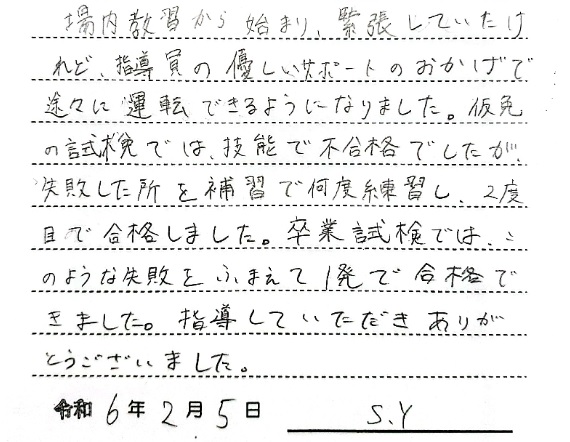 場内教習から始まり、緊張していたけ
れど、指導員の優しいサポートのおかげで
途々に運転できるようになりました。仮免
の試検では、技能で不合格でしたが、
失敗した所を補習で何度練習し、2度
目で合格しました。卒業試検では、こ
のような失敗をふまえて1発で合格で
きました。指導していただきありが
とうございました。
令和6年2月5日 S.Y